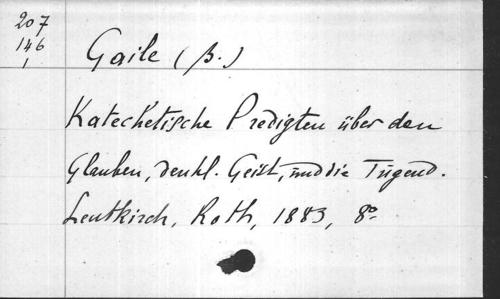 207
146
1
Gaile (B.)
Katechetische Predigten über den
Glauben, den hl. Geist, und die Tugend.
Leutkirch, Roth, 1883, 8°